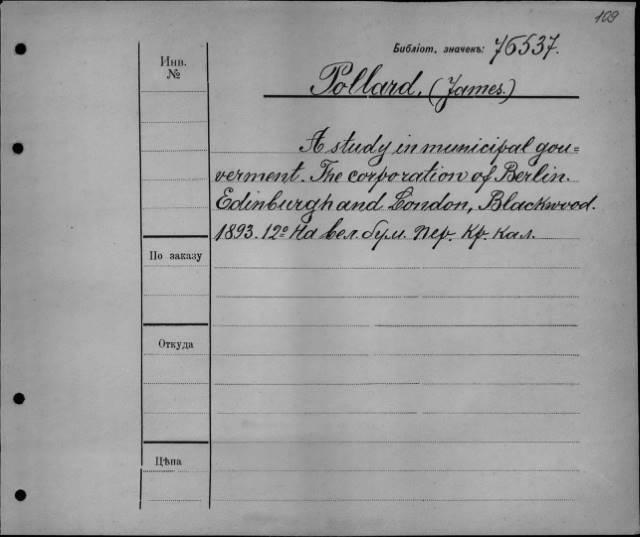 109
Библіот. значекъ: 76537.
Инв.
№
Pollard, (James.)
A study in municipal gou=
verment. The corporation of Berlin
Edinburgh and London, Blackwood.
1893. 12° На вел. бум. пер. Кр. кал.
По заказу
Откуда
Цѣна